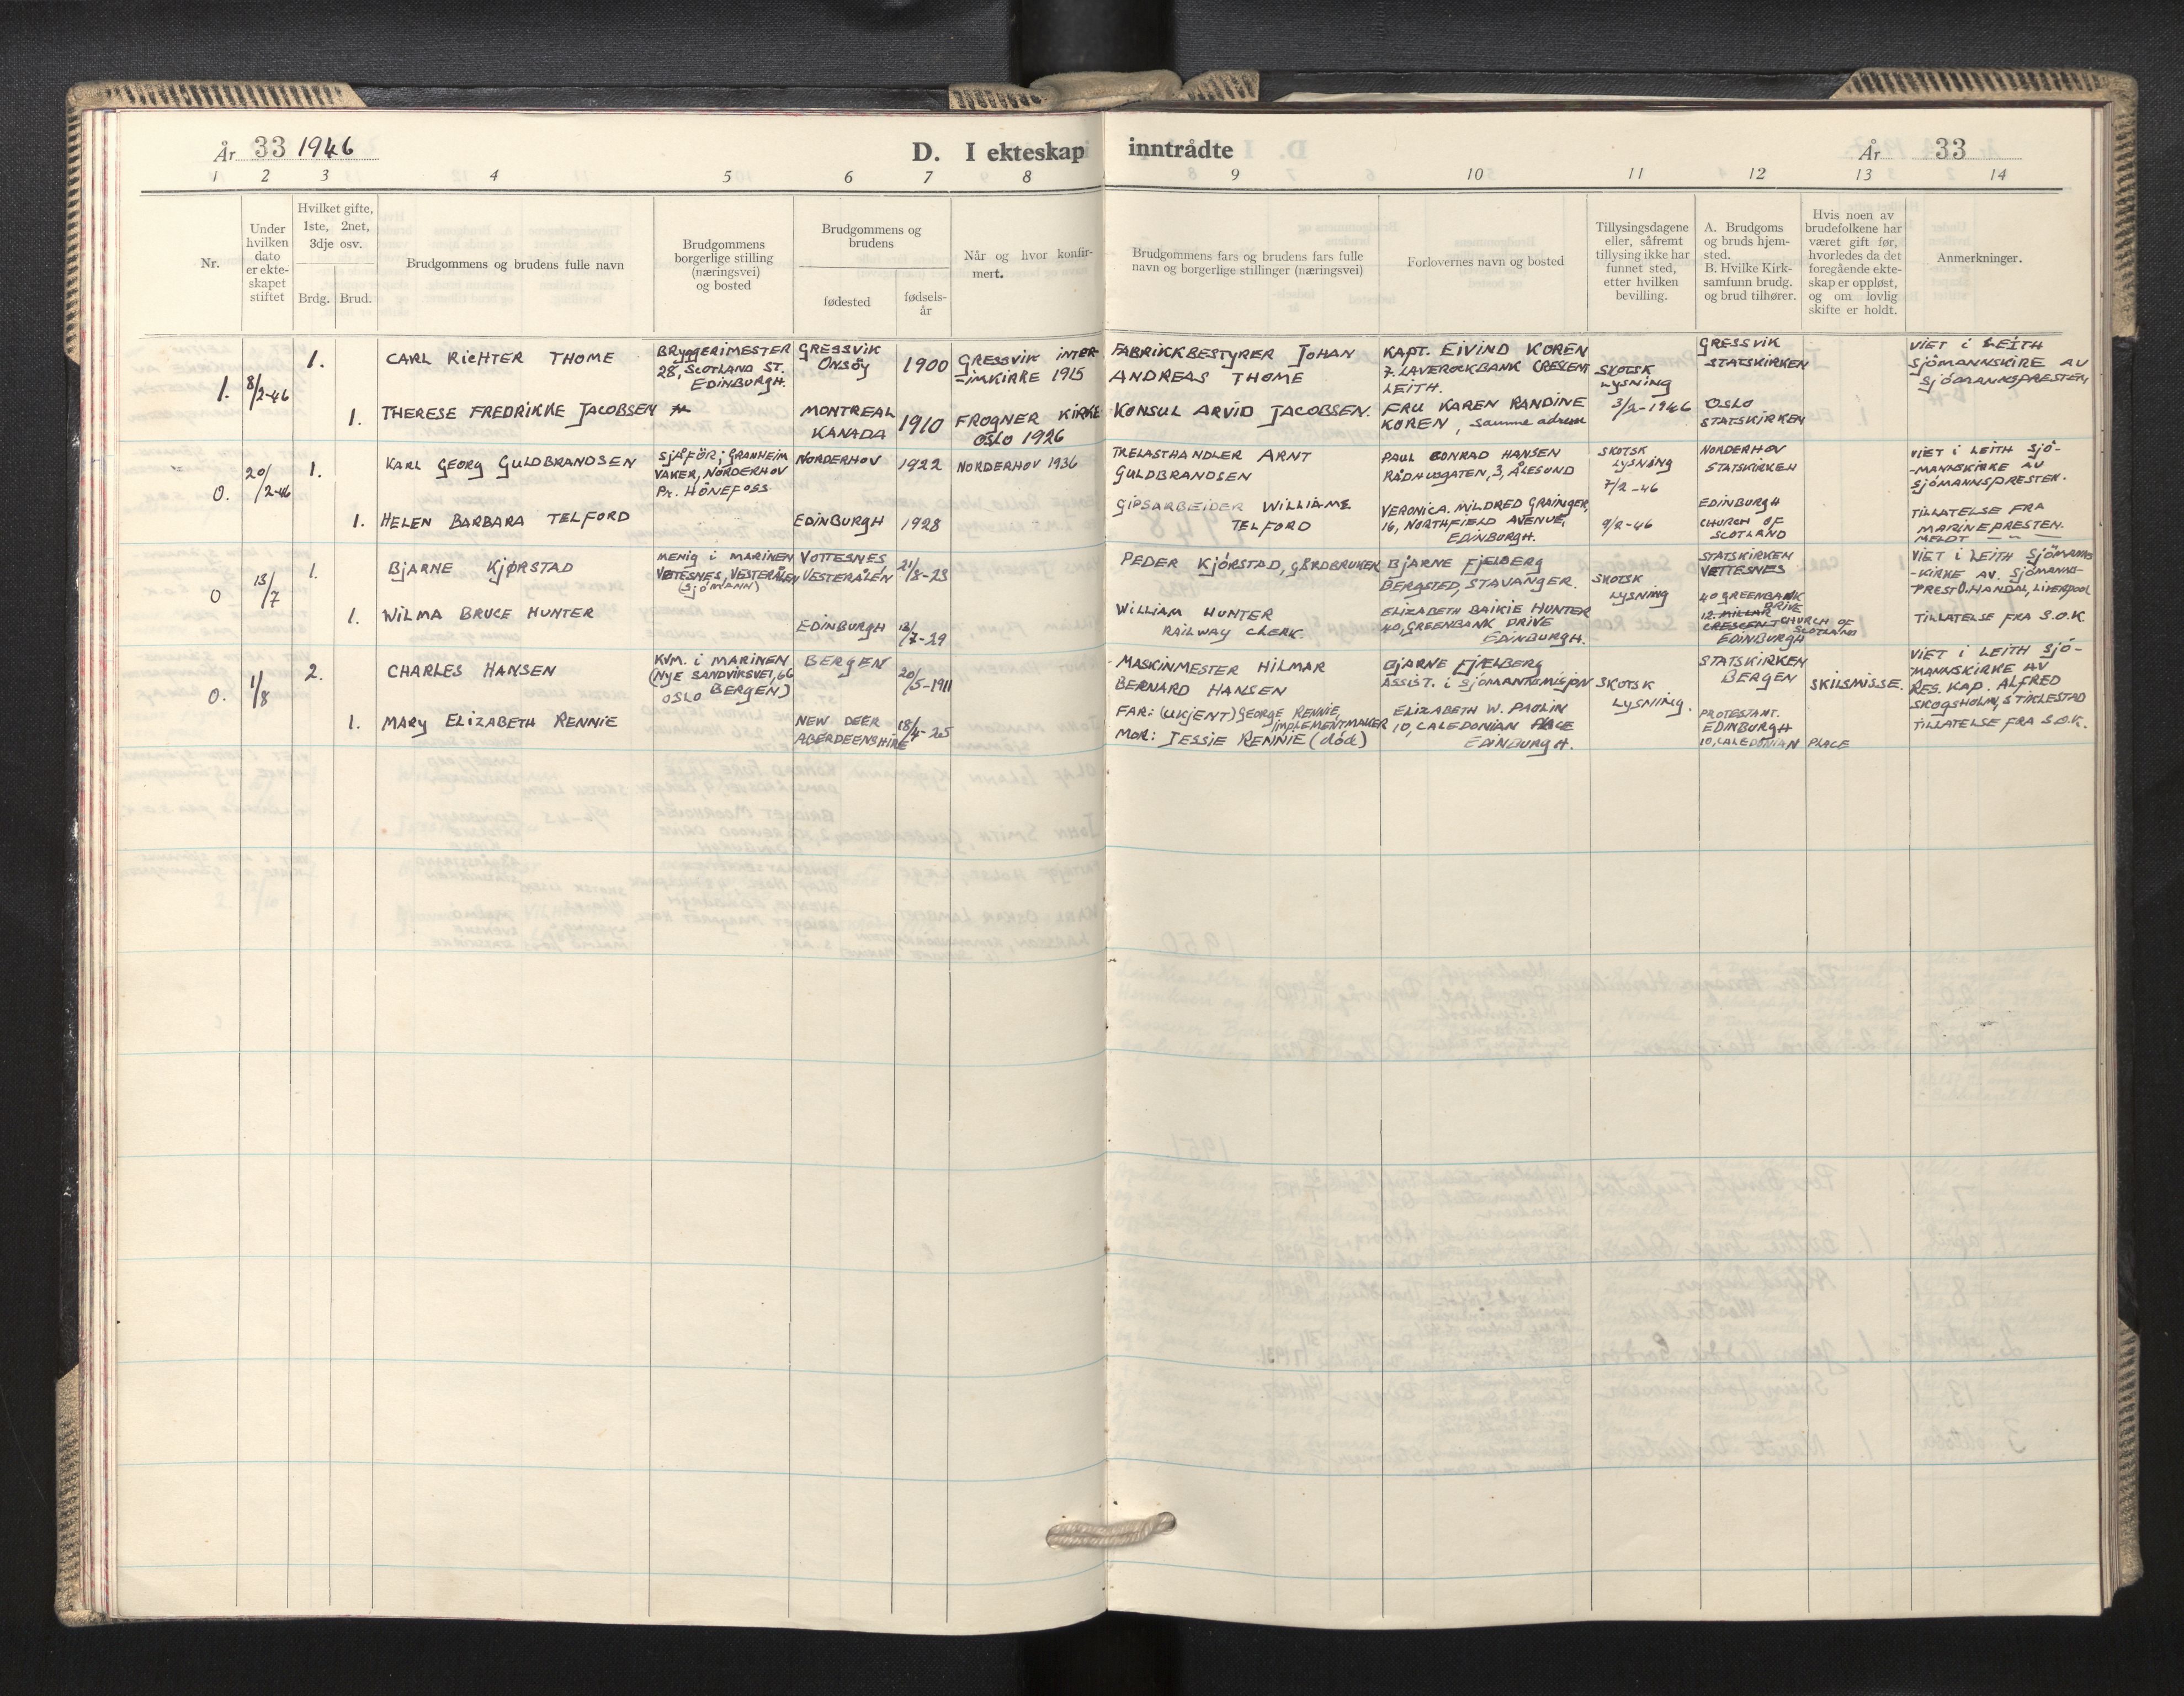 År 33 1946
D. I ekteskap inntrådte
År 33
1 2 3 4 5 6 7 8 9 10 11 12 13 14
Nr.
Under
hvilken
dato
er ekte-
skapet
stiftet
Hvilket gifte,
1ste, 2net,
3dje osv.
Brdg. Brud.
Brudgommens og brudens fulle navn
Brudgommens
borgerlige stilling
(næringsvei)
og bosted
Brudgommens og
brudens
fødested
fødsels-
år
Når og hvor konfir-
mert.
Brudgommens fars og brudens fars fulle
navn og borgerlige stillinger (næringsvei)
Forlovernes navn og bosted
Tillysingsdagene
eller, såfremt
tillysing ikke har
funnet sted,
etter hvilken
bevilling.
A. Brudgoms
og bruds hjem-
sted.
B. Hvilke Kirk-
samfunn brudg.
og brud tilhører.
Hvis noen av
brudefolkene har
været gift før,
hvorledes da det
foregående ekte-
skap er oppløst,
og om lovlig
skifte er holdt.
Anmerkninger.
1. 8/2-46
1.
CARL RICHTER THOME
BRYGGERIMESTER
28, SCOTLAND ST.
EDINBURGH.
GRESSVIK
ONSÖY
1900
GRESSVIK INTER-
-IMKIRKE 1915
FABRIKKBESTYRER JOHAN
ANDREAS THOME
KAPT. EIVIND KOREN
7. LAVEROCKBANK CRESCENT
LEITH.
SKOTSK
LYSNING
3/2-1946
GRESSVIK
STATSKIRKEN
VIET I LEITH
SJÖMANNSKIRE AV
SJÖMANNSPRESTEN
1.
THERESE FREDRIKKE JACOBSEN
MONTREAL
KANADA
1910
FROGNER KIRKE
OSLO 1926
KONSUL ARVID JACOBSEN.
FRU KAREN RANDINE
KOREN, samme adresse
OSLO
STATSKIRKEN
0. 20/2-46
1.
KARL GEORG GULDBRANDSEN
SJÅFÖR; GRANHEIM
VAKER, NORDERHOV
Pr. HÖNEFOSS
NORDERHOV
1922
NORDERHOV 1936
TRELASTHANDLER ARNT
GULDBRANDSEN
PAUL CONRAD HANSEN
RÅDHUSGATEN, 3, ÅLESUND
SKOTSK
LYSNING
7/2-46
NORDERHOV
STATSKIRKEN
VIET I LEITH SJÖ-
-MANNSKIRKE AV
SJÖMANNSPRESTEN.
1.
HELEN BARBARA TELFORD
EDINBURGH
1928
GIPSARBEIDER WILLIAME
TELFORD
VERONICA. MILDRED GRAINGER,
16, NORTHFIELD AVENUE,
EDINBURGH.
9/2-46
EDINBURGH
CHURCH OF
SCOTLAND
TILLATELSE FRA
MARINEPRESTEN.
MELDT — " —
0 13/7
1.
BJARNE KJØRSTAD
MENIG I MARINEN
VOTTESNES, VESTERÅLEN
(SJÖMANN)
VOTTESNES,
VESTERÅLEN
21/8-23
PEDER KJÖRSTAD, GÅRDBRUKER
BJARNE FJELBERG
BERGSTED, STAVANGER.
SKOTSK
LYSNING
STATSKIRKEN
VETTESNES
VIET I LEITH SJÖMANNS
-KIRKE AV. SJÖMANNS-
PREST O. HANDAL, LIVERPOOL
1.
WILMA BRUCE HUNTER
EDINBURGH
13/7-29
WILLIAM HUNTER
RAILWAY CLERK.
ELIZABETH BAIKIE HUNTER
40, GREENBANK DRIVE
EDINBURGH.
40 GREENBANK
DRIVE
12. MILLAR
CRESCENT CHURCH OF
SCOTLAND
EDINBURGH
TILLATELSE FRA S.O.K.
0. 1/8
2.
CHARLES HANSEN
KVM. I MARINEN
(NYE SANDVIKSVEI, 66
OSLO BERGEN)
BERGEN
20/5-1911
MASKINMESTER HILMAR
BERNARD HANSEN
BJARNE FJELBERG
ASSIST. I SJÖMANNSMISJON
SKOTSK
LYSNING.
STATSKIRKEN
BERGEN
SKILSMISSE.
VIET I LEITH SJÖ-
MANNSKIRKE AV
RES. KAP. ALFRED
SKOGSHOLM, STIKLESTAD
1.
MARY ELIZABETH RENNIE
NEW DEER
ABERDEENSHIRE
18/4-25
FAR: (UKJENT) GEORGE RENNIE,
IMPLEMENTMAKER
MOR: JESSIE RENNIE (död)
ELIZABETH W. PAULIN
10, CALEDONIAN PLACE
EDINBURGH.
PROTESTANT.
EDINBURGH
10, CALEDONIAN PLACE
TILLATELSE FRA S.O.K.